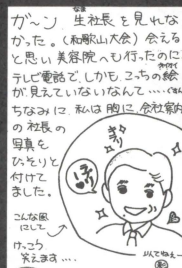 ガ〜ン 生社長を見れな
なま
かった。(和歌山大会) 会える
と思い美容院へも行ったのに
テレビ電話で、しかも、こっちの絵
が見えていないなんて……
ちなみに、私は胸に会社案内
の社長の
写真を
ひっそりと
付けて
ました。
キラリ
ほっほっ
こんな風
にして
けっこう
笑えます….